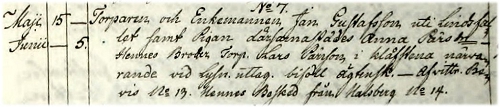 No 7.
Maji 15 — Torparen och Enkemannen Jan Gustafsson uti Linds-
Junii — 5. let samt Pigan därsammastädes Anna Pärs Dr —
Hennes Broder Torp. Lars Pärsson, i Klåfstena närva-
rande vid lysn. uttag. bifölt ägtensk. — Afvittr. Be-
vis No 13. Hennes Besked från Malsberg No 14.